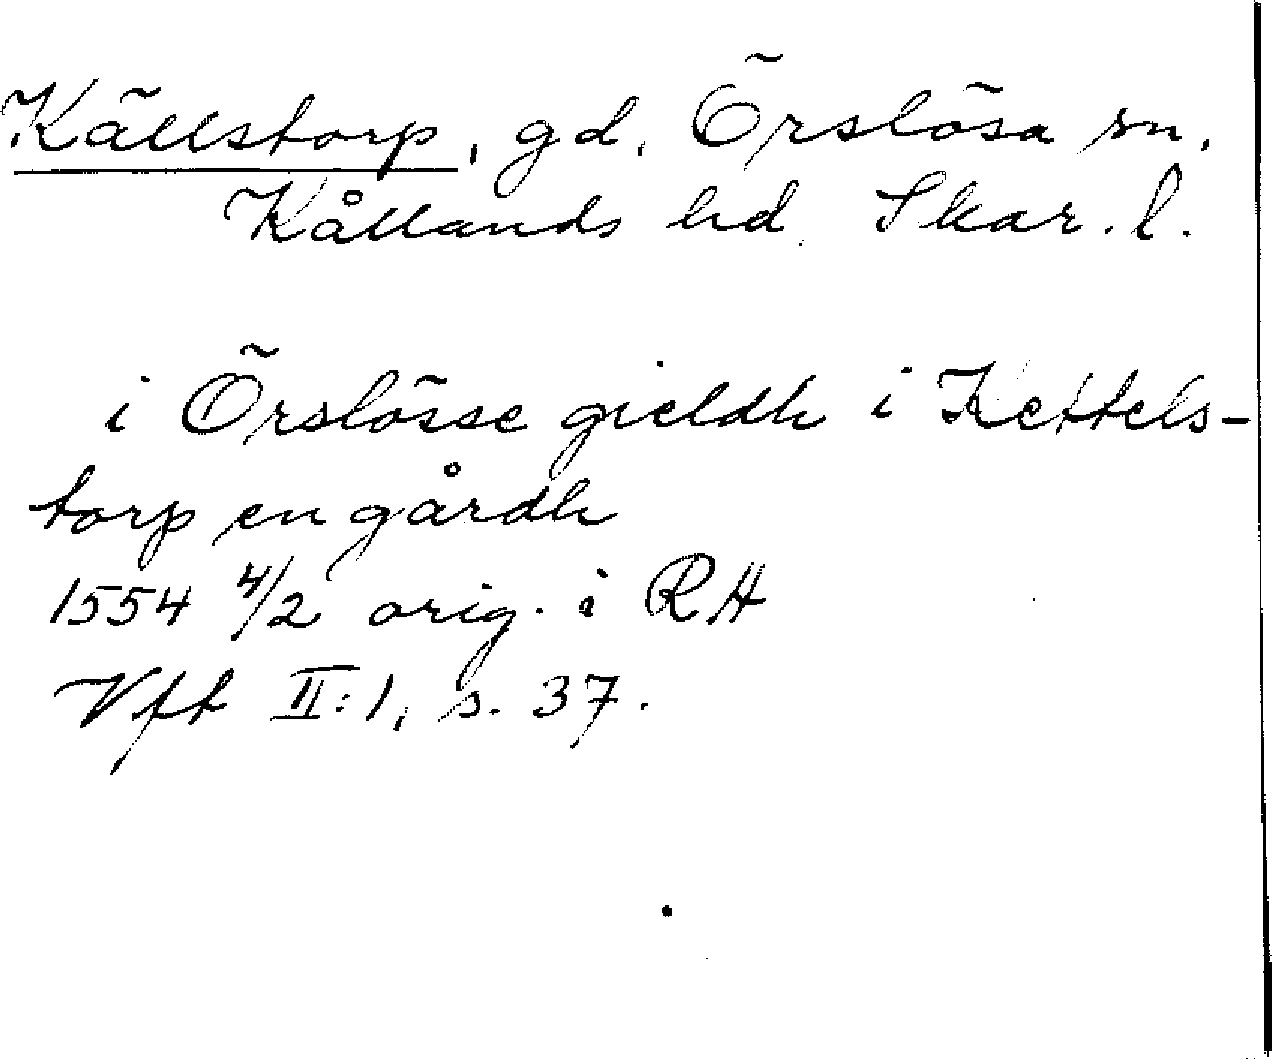 Källstorp, gd, Örslösa sn.
Kållands hd. Skar. l.
i Örslösse gieldh i Kettels-
torp en gårdh
1554 4/2 orig. i RH
Vft II:1, s. 37.